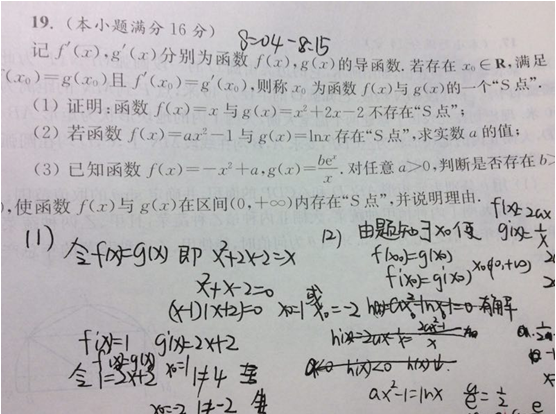 19.(本小题满分 16 分) 8:04-8:15
记 f′(x),g′(x)分别为函数 f(x),g(x)的导函数. 若存在 x₀∈R,满足
′(x₀)=g(x₀)且 f′(x₀)=g′(x₀),则称 x₀ 为函数 f(x)与 g(x)的一个“S 点”.
(1) 证明:函数 f(x)=x 与 g(x)=x²+2x-2 不存在“S 点”;
(2) 若函数 f(x)=ax²-1 与 g(x)=lnx 存在“S 点”,求实数 a 的值;
(3) 已知函数 f(x)=-x²+a,g(x)=beˣ/x. 对任意 a>0,判断是否存在 b>
),使函数 f(x)与 g(x)在区间(0,+∞)内存在“S 点”,并说明理由.
(1)
令f(x)=g(x) 即 x²+2x-2=x
x²+x-2=0
(x-1)(x+2)=0 x₀=1 或 x₀=-2
f′(x)=1 g′(x)=2x+2
f′(x)=g′(x)
令1=2x+2 x₀=1 1≠4 舍
x₀=-2 1≠-2 舍
(2) 由题知∃x₀使
f′(x)=2ax
g′(x)=1/x
f(x₀)=g(x₀)
f′(x₀)=g′(x₀) x₀∈(0,+∞)
h(x)=ax²-lnx-1=0 有解
ax²-1=lnx